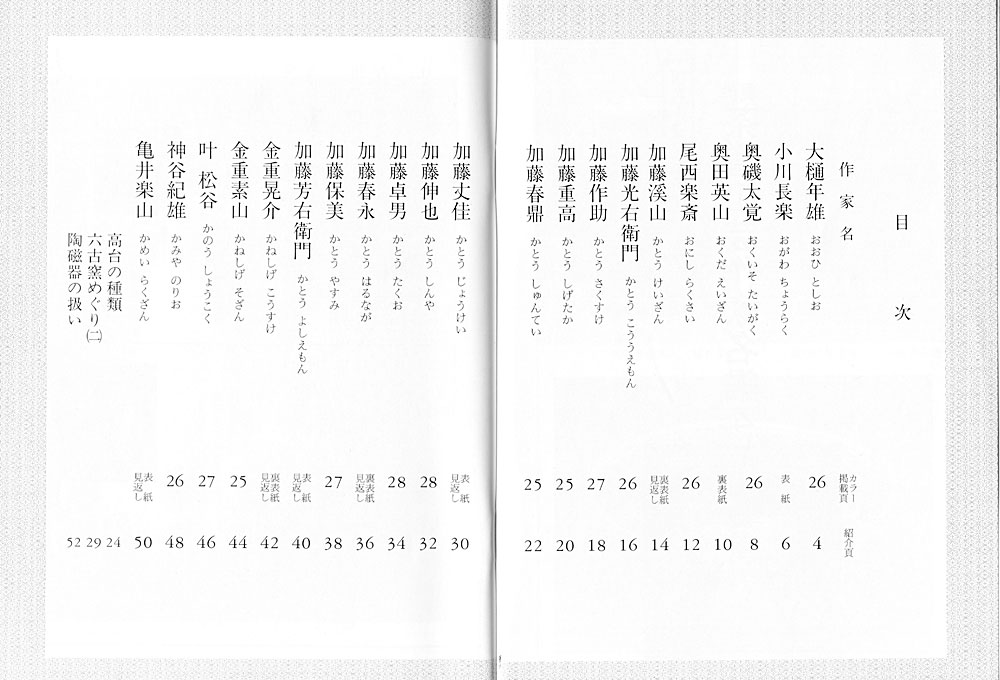 目次
作家名 カラー掲載頁 紹介頁
大樋年雄 おおひ としお 26 4
小川長楽 おがわ ちょうらく 表紙 6
奥磯太覚 おくいそ たいがく 26 8
奥田英山 おくだ えいざん 裏表紙 10
尾西楽斎 おにし らくさい 26 12
加藤溪山 かとう けいざん 裏表紙見返し 14
加藤光右衛門 かとう こううえもん 26 16
加藤作助 かとう さくすけ 27 18
加藤重高 かとう しげたか 25 20
加藤春鼎 かとう しゅんてい 25 22
加藤丈佳 かとう じょうけい 表紙見返し 30
加藤伸也 かとう しんや 28 32
加藤卓男 かとう たくお 28 34
加藤春永 かとう はるなが 裏表紙見返し 36
加藤保美 かとう やすみ 27 38
加藤芳右衛門 かとう よしえもん 表紙見返し 40
金重晃介 かねしげ こうすけ 裏表紙見返し 42
金重素山 かねしげ そざん 25 44
叶松谷 かのう しょうこく 27 46
神谷紀雄 かみや のりお 26 48
亀井楽山 かめい らくざん 表紙見返し 50
高台の種類 24
六古窯めぐり(二) 29
陶磁器の扱い 52